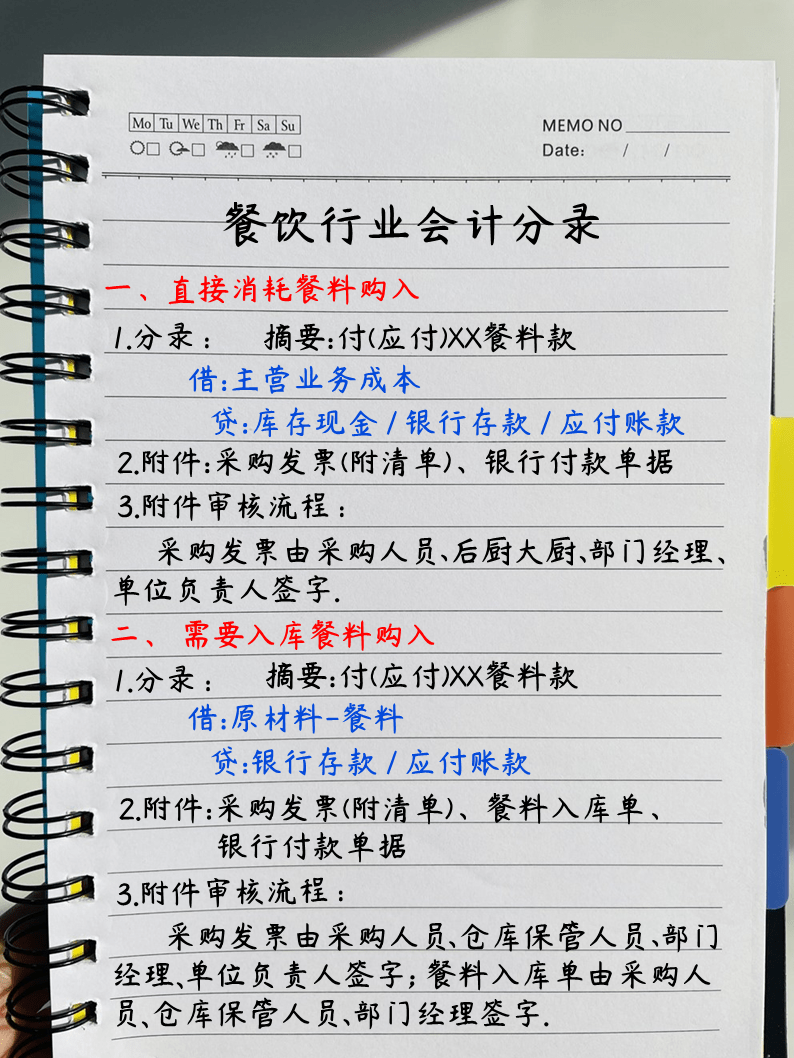 Mo Tu We Th Fr Sa Su
MEMO NO
Date: / /
餐饮行业会计分录
一、直接消耗餐料购入
1.分录： 摘要:付(应付)XX餐料款
借:主营业务成本
贷:库存现金/银行存款/应付账款
2.附件:采购发票(附清单)、银行付款单据
3.附件审核流程：
采购发票由采购人员、后厨大厨、部门经理、
单位负责人签字.
二、需要入库餐料购入
1.分录： 摘要:付(应付)XX餐料款
借:原材料-餐料
贷:银行存款/应付账款
2.附件:采购发票(附清单)、餐料入库单、
银行付款单据
3.附件审核流程：
采购发票由采购人员、仓库保管人员、部门
经理、单位负责人签字；餐料入库单由采购人
员、仓库保管人员、部门经理签字.